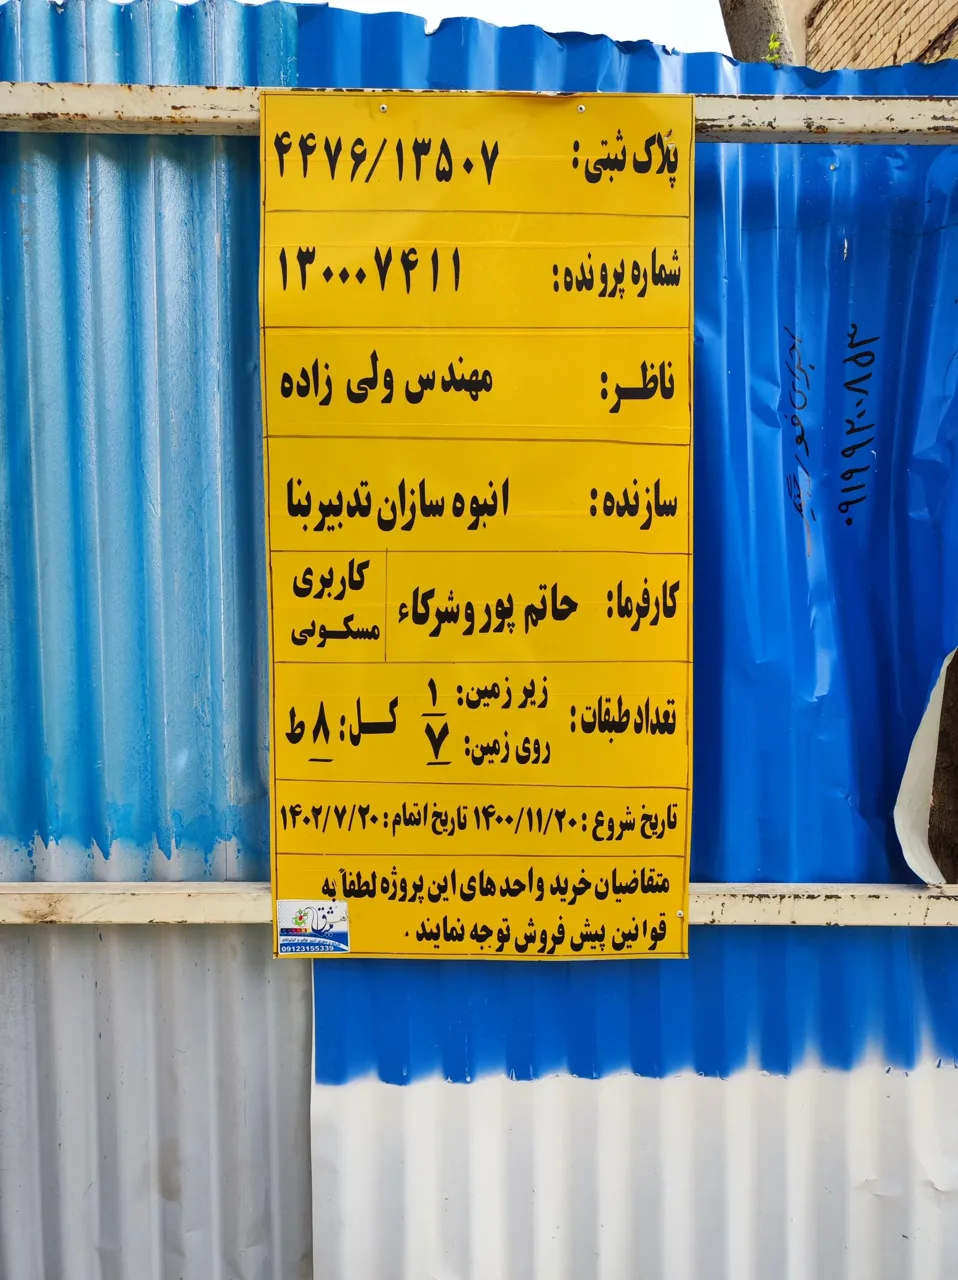 پلاک ثبتی: ۴۴۷۶/۱۳۵۰۷
شماره پرونده: ۱۳۰۰۰۷۴۱۱
ناظر: مهندس ولی زاده
سازنده: انبوه سازان تدبیربنا
کارفرما: حاتم پور وشرکاء
کاربری
مسکونی
تعداد طبقات:
زیر زمین: ۱
روی زمین: ۷
کل: ۸ ط
تاریخ شروع: ۱۴۰۰/۱۱/۲۰ تاریخ اتمام: ۱۴۰۲/۷/۲۰
متقاضیان خرید واحدهای این پروژه لطفاً به
قوانین پیش فروش توجه نمایند .
09123155339